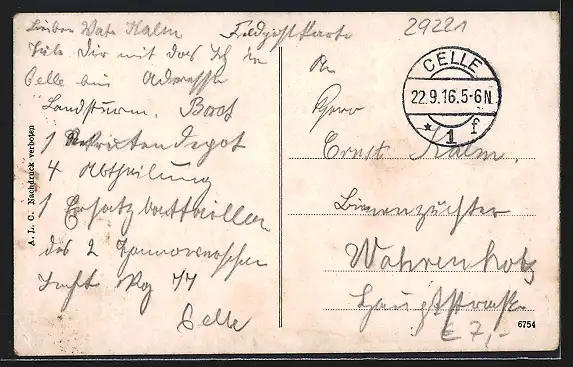 29221
Feldpostkarte
Lieber Vater Kalm
Teile Dir mit das Ich in
Celle bin Adresse
Landsturm.
1 Rekrutendepot
4 Abtheilung
1 Ersatz Battaillon
des 2 Hannoverschen
Inft Reg 77
Celle
A. L. C. Nachdruck verboten
CELLE
22.9.16.5-6N
* 1 f
An
Herrn
Ernst Kalm,
Bienenzüchter
Wahrenholz
Hauptstraße
€ 7,-
6754